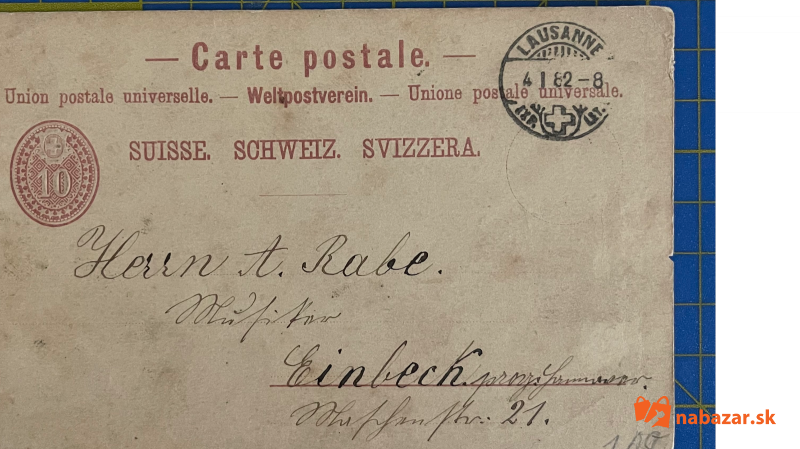 — Carte postale. —
Union postale universelle. — Weltpostverein. — Unione postale universale.
LAUSANNE
4 I 82-8
EXP. LET.
SUISSE. SCHWEIZ. SVIZZERA.
10
Herrn A. Rabe.
Musiker
Einbeck. prov. Hannover.
Maschenstr: 21.
nabazar.sk